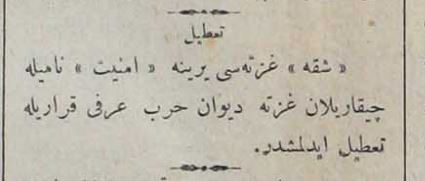 تعطیل
« شقه » غزته‌سی یرینه « امنیت » نامیله
چیقاریلان غزته دیوان حرب عرفی قراریله
تعطیل ایدلمشدر.